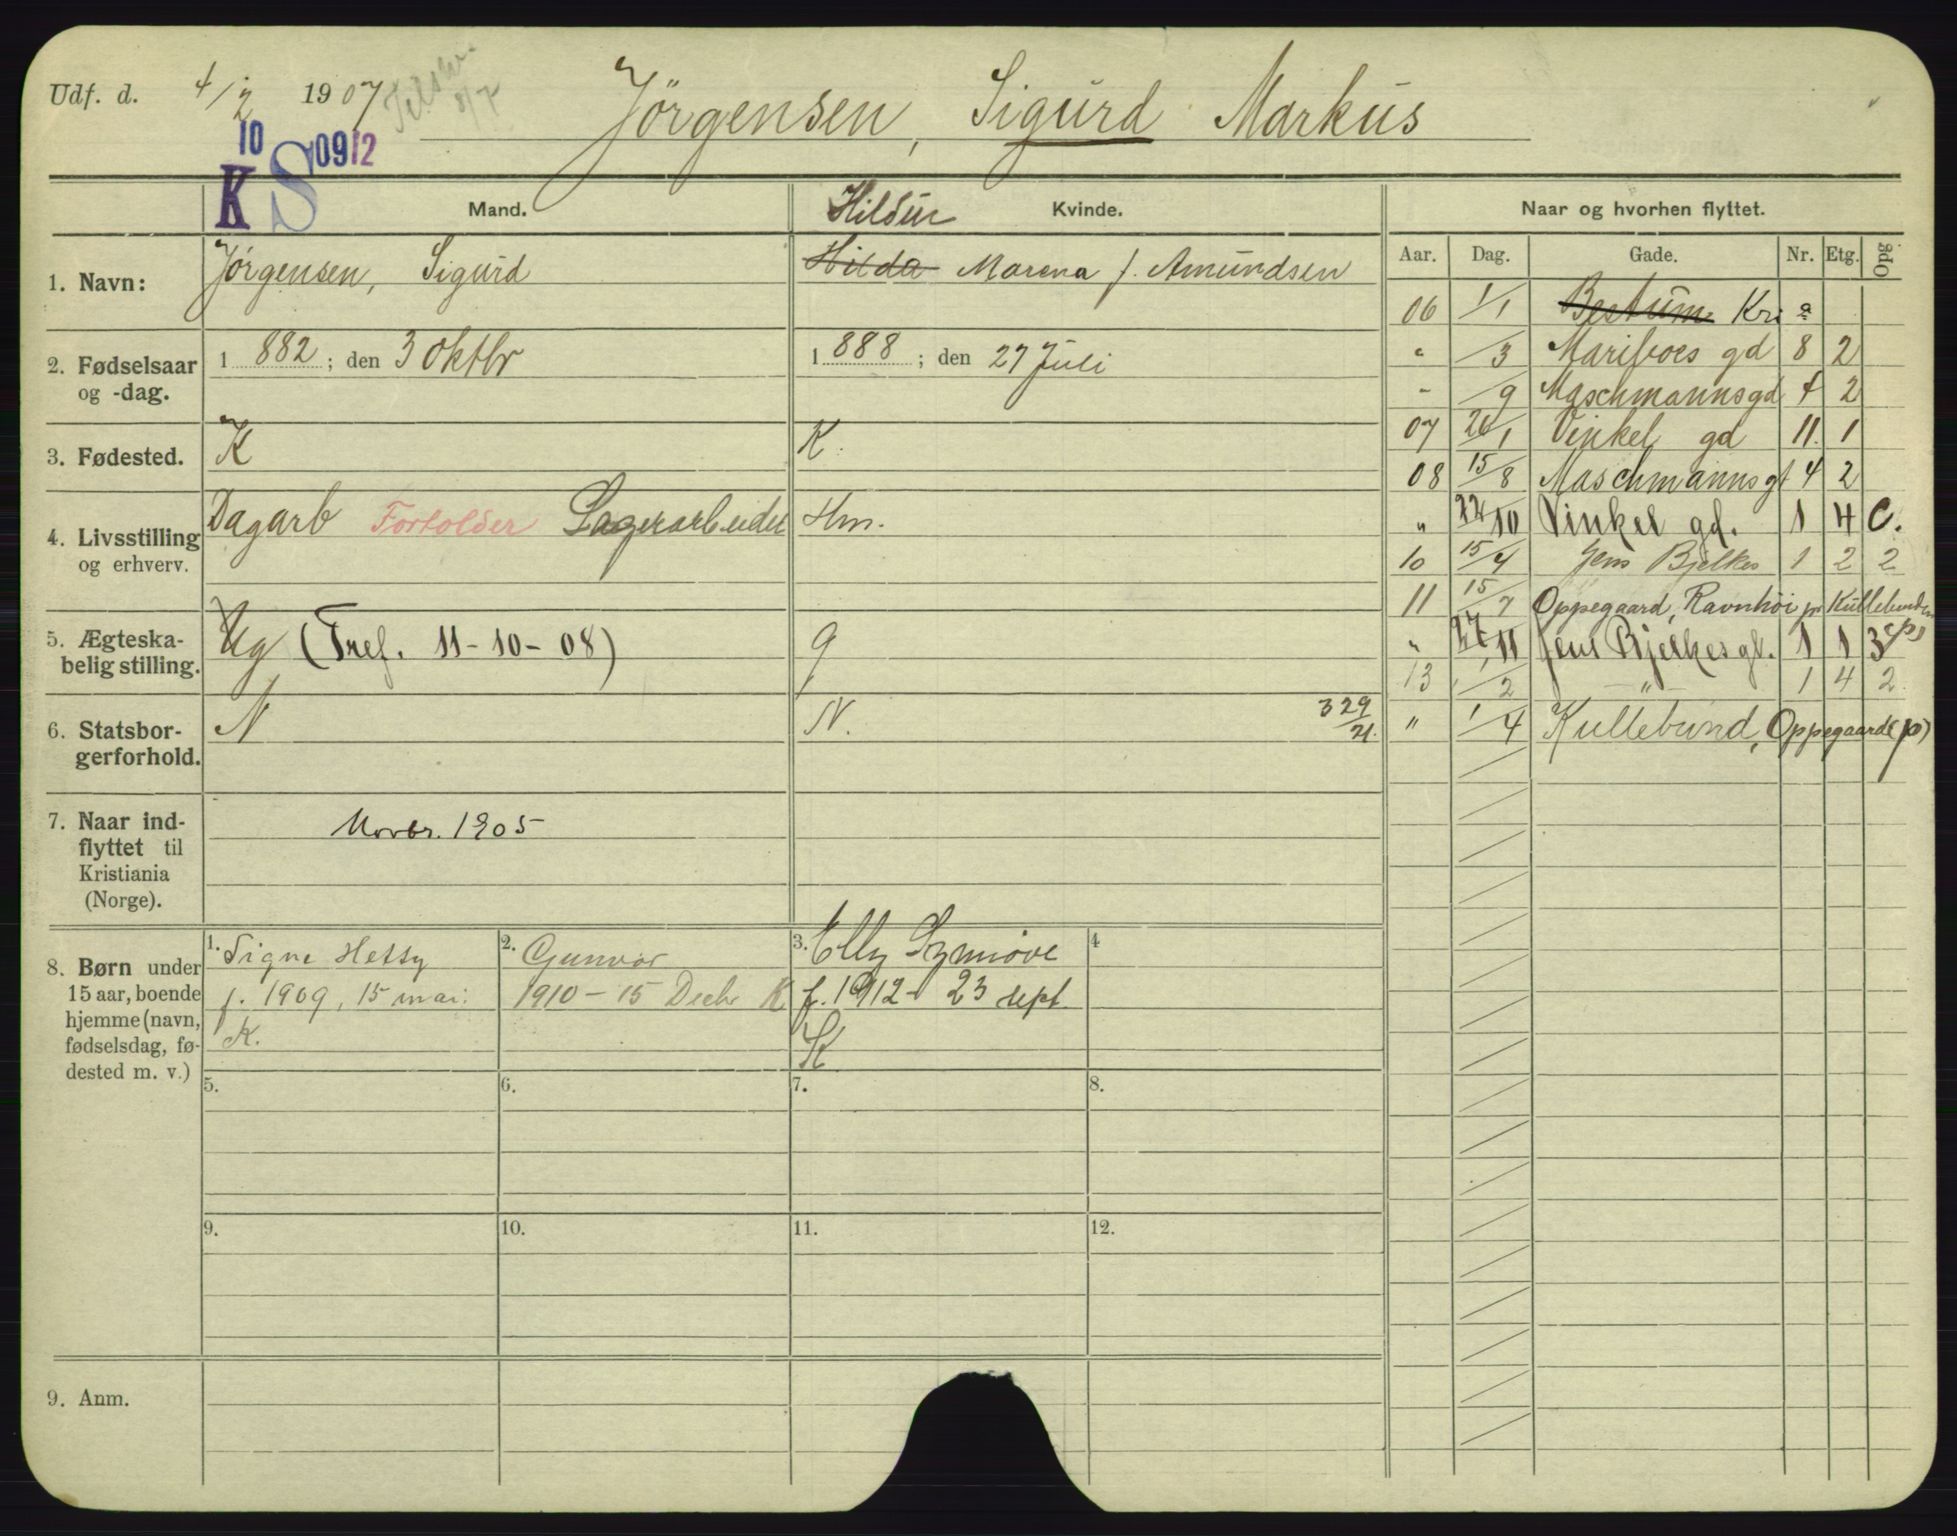 Udf. d. 4/2 1907
Jörgensen, Sigurd Markus
10
K S 0912
Mand.
Hildur Kvinde.
Naar og hvorhen flyttet.
1. Navn: Jörgensen, Sigurd
Hilda Marena f. Amundsen
2. Fødselsaar og -dag. 1882; den 3 Oktbr
1888; den 27 Juli
3. Fødested. K
K.
4. Livsstilling og erhverv. Dagarb Forkolder Lagerarbeider
Hm.
5. Ægteska-belig stilling. Ug (Tref. 11-10-08)
g
6. Statsbor-gerforhold. N
N. 329/21.
7. Naar ind-flyttet til Kristiania (Norge). Novbr. 1905
8. Børn under 15 aar, boende hjemme (navn, fødselsdag, fø-dested m. v.)
1. Signe Hetty
f. 1909, 15 mai.
K.
2. Gunvor
1910 - 15 Decbr K
3. Elly Synnöve
f. 1912 - 23 sept
K
4
5.
6.
7.
8.
9.
10.
11.
12.
9. Anm.
Aar. Dag. Gade. Nr. Etg. Opg
06 1/1 Bestum Kria
" /3 Mariboes gd 8 2
- /9 Maschmannsgd 4 2
07 26/1 Vinkel gd 11. 1
08 15/8 Maschmannsgt 4 2
" 22/10 Vinkel gd. 1 4 C.
10 15/4 Jens Bjelkes 1 2 2
11 15/7 Oppegaard, Ravnhöi pr Kullebunden (p)
" 27/11 Jens Bjelkesgt. 1 1 3
13 1/2 —"— 1 4 2.
" 1/4 Kullebund, Oppegaard (p)